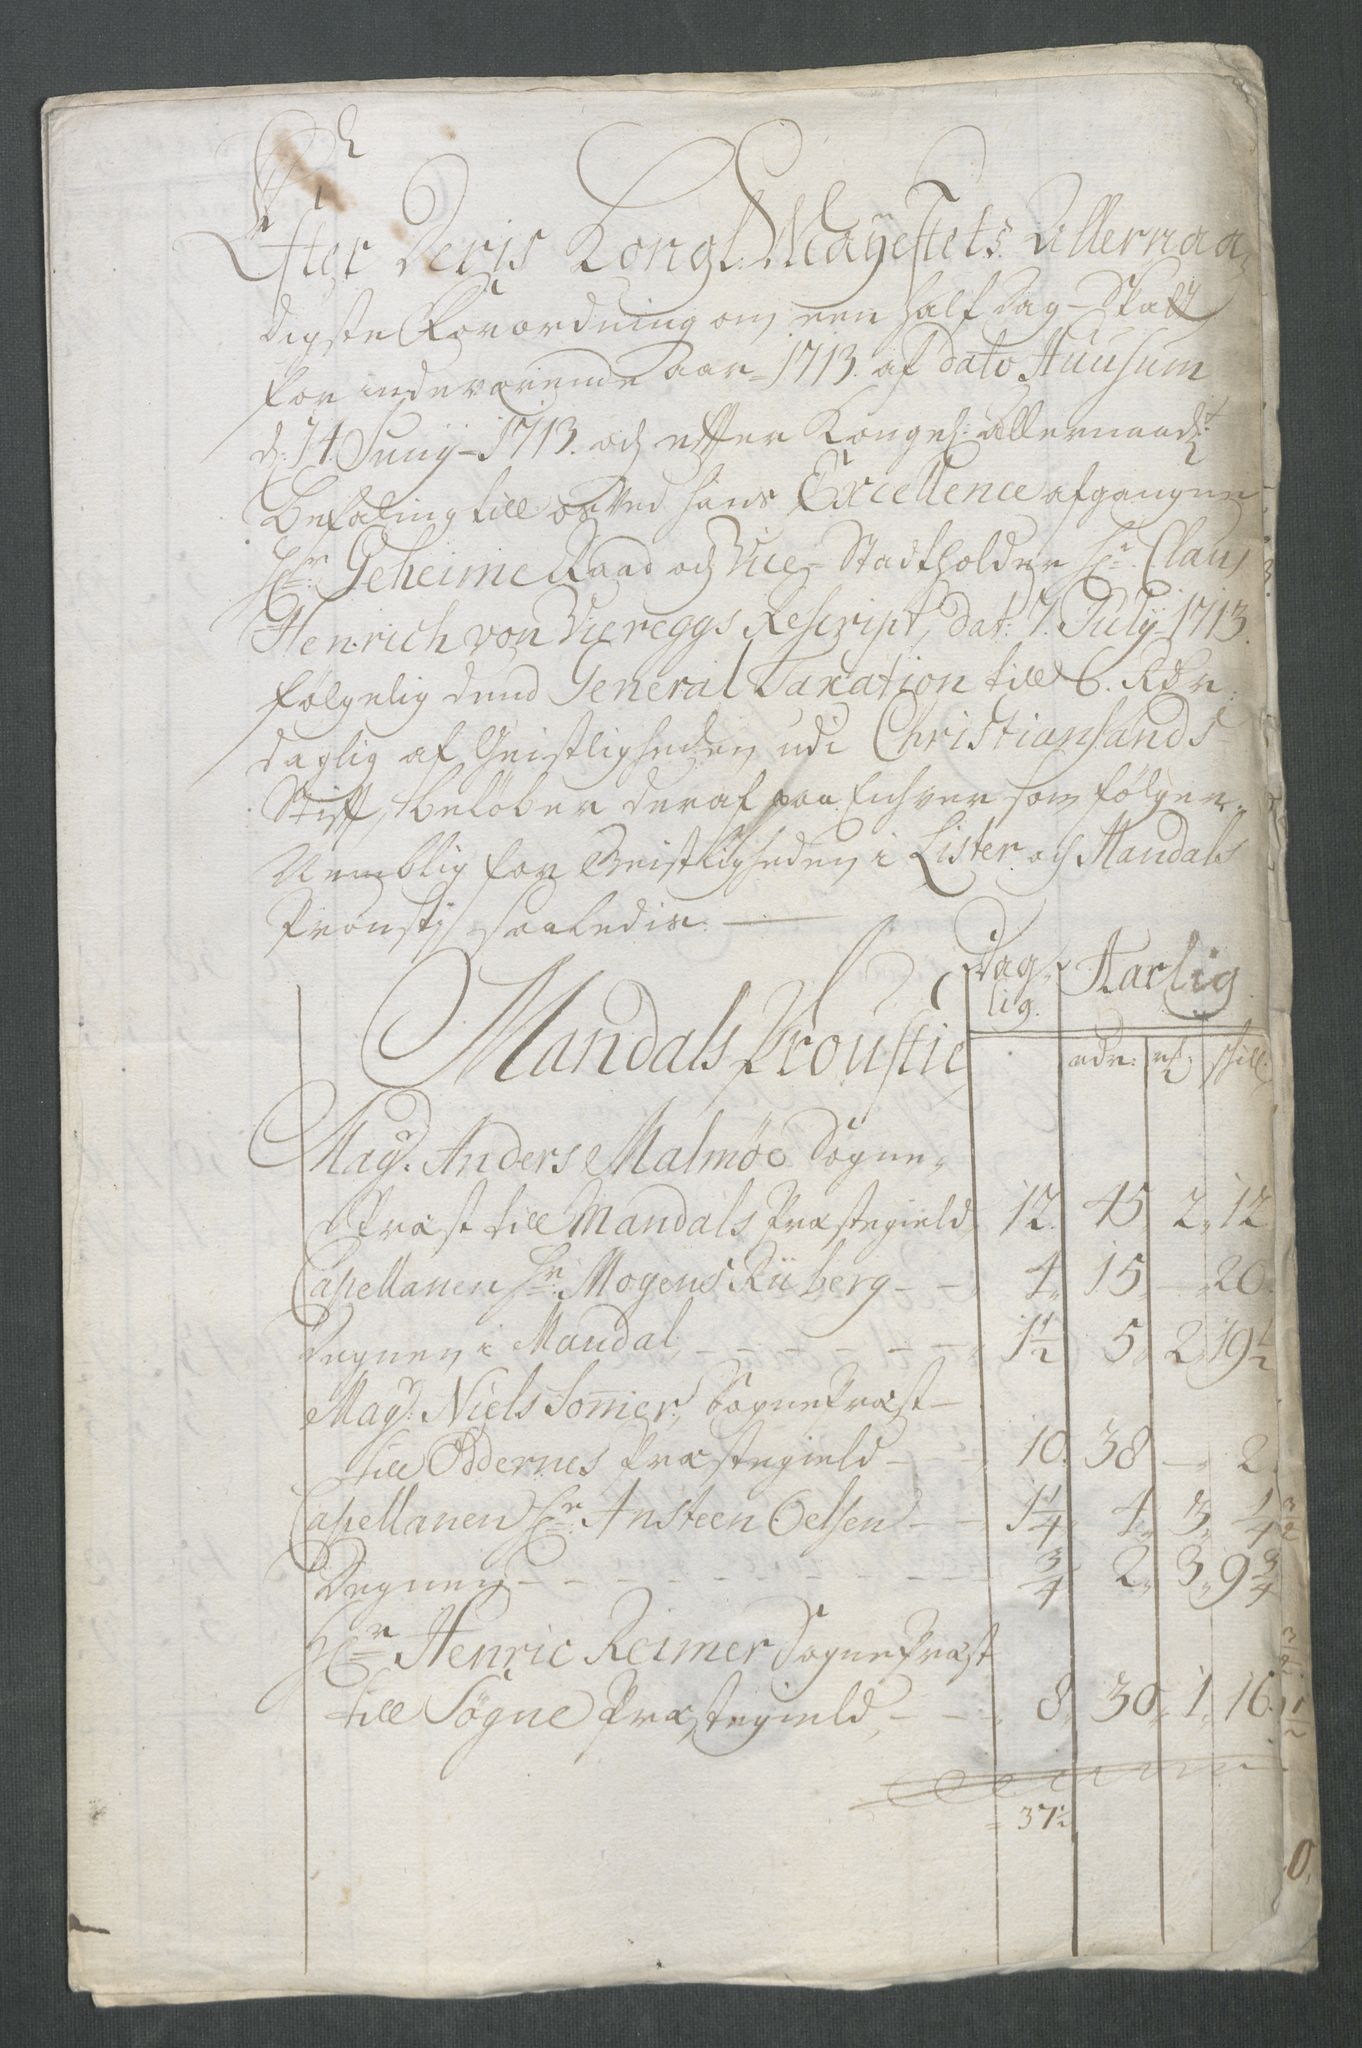 Efter Deris Kongl: Mayestets Allernaa-
digste Forordning om een half dag-Skatt
for indeværende aar 1713. af dato Huusum
d: 14 Junij 1713. och effter Kongel: allernaad:st
Befaling till og Ved hans Excellence afgangne
Hr: Geheime Raad och Vice-Stadtholder Hr. Claus
Henrich von Vieregg's Rescript, dat: 7. Julij 1713.
følgelig dend General Taxation till 6. Rdr:
daglig af Geistligheden udi Christiansands
Stift, beløber deraf paa Enhver som følger,
Nemblig for Geistligheden i Lister och Mandals
Proustj saaledis.
Dag-
lig. Aarlig
Mandals Proustie
rdr: skill:
Magr. Anders Malmöe Sogne-
Præst till Mandals Præstegield 12. 45 2 12
Capellanen Hr. Mogens Rüberg 4 15 - 20
Degnen i Mandal 1 1/2 5 2 19 1/2
Magr. Niels Somer, SognePræst
till Oddernes Præstegield 10. 38 - 2
Capellanen Hr. Ansteen Oelsen 1 1/4 4 3 1/4
Degnen 3/4 2 3 9 3/4
Hr Henric Reimer SognePræst
till Sögne Præstegield 8 30 1 16
37 1/2